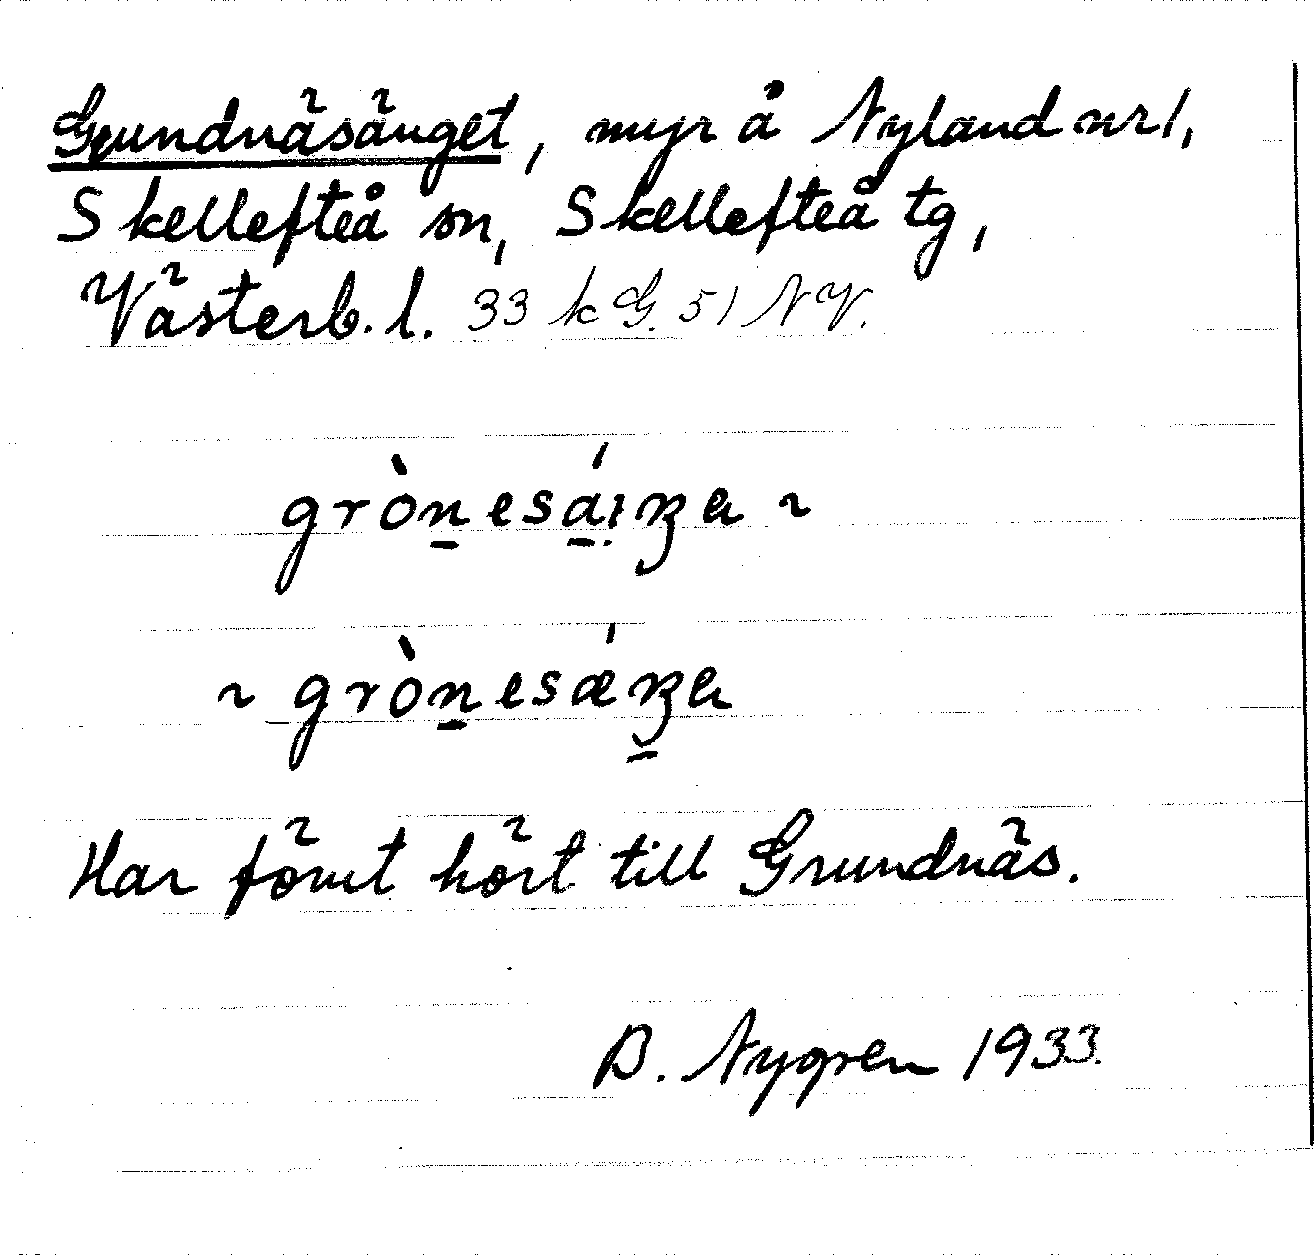 Grundnäsänget, myr å Nyland nr 1,
Skellefteå sn, Skellefteå tg,
Västerb. l. 33 k G. 51 NV.
gròn̲esá̲i̩ŋa ~
~ gròn̲esæ̀ŋ̲a
Har förut hört till Grundnäs.
D. Nygren 1933.